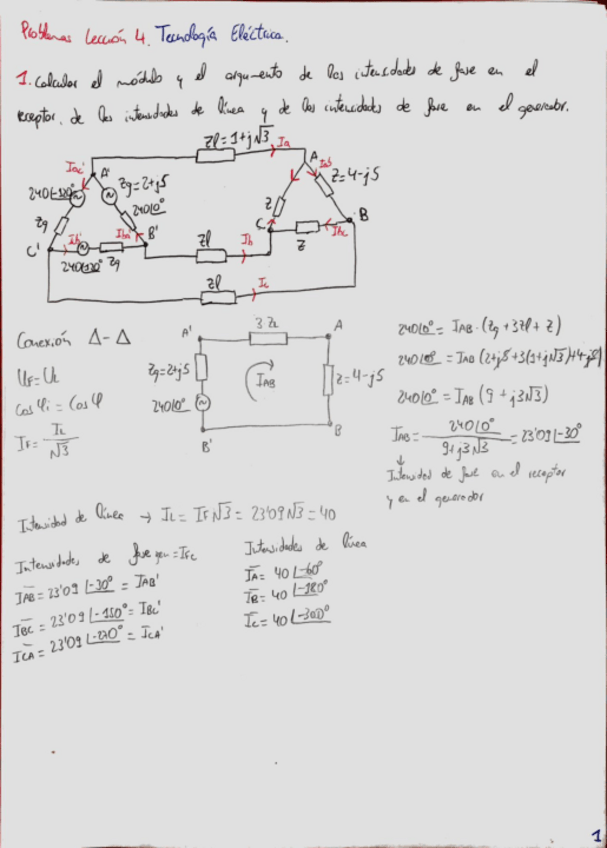 Problemas Lección 4. Tecnología Eléctrica.
1. Calcular el módulo y el argumento de las intensidades de fase en el
receptor, de las intensidades de línea y de las intensidades de fase en el generador.
Zl=1+j√3
Ia
A
Iab
Z=4-j5
Iac'
A'
240∠-120°
Zg=2+j5
240∠0°
Zg
Z
C
B
Z
Ibc
C'
Ib'
Iba'
B'
240∠120°
Zg
Zl
Ib
Zl
Ic
Conexión Δ-Δ
UF=UL
cos φi = cos φ
IF= IL/√3
A'
3 ZL
A
Zg=2+j5
IAB
Z=4-j5
240∠0°
B'
B
240∠0° = IAB · (Zg+3Zl+Z)
240∠0° = IAB (2+j5+3(1+j√3)+4-j5)
240∠0° = IAB (9+j3√3)
IAB = 240∠0° / 9+j3√3 = 23'09∠-30°
Intensidad de fase en el receptor
y en el generador
Intensidad de línea → IL = IF√3 = 23'09√3 = 40
Intensidades de fase gen = IFc
IAB = 23'09∠-30° = IAB'
IBC = 23'09∠-150° = IBC'
ICA = 23'09∠-270° = ICA'
Intensidades de línea
IA = 40∠-60°
IB = 40∠-180°
IC = 40∠-300°
1